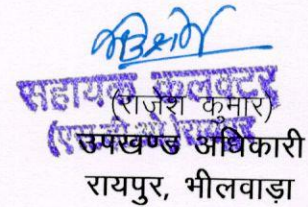 सहायक कलक्टर
(राजेश कुमार)
उपखण्ड अधिकारी
रायपुर, भीलवाड़ा